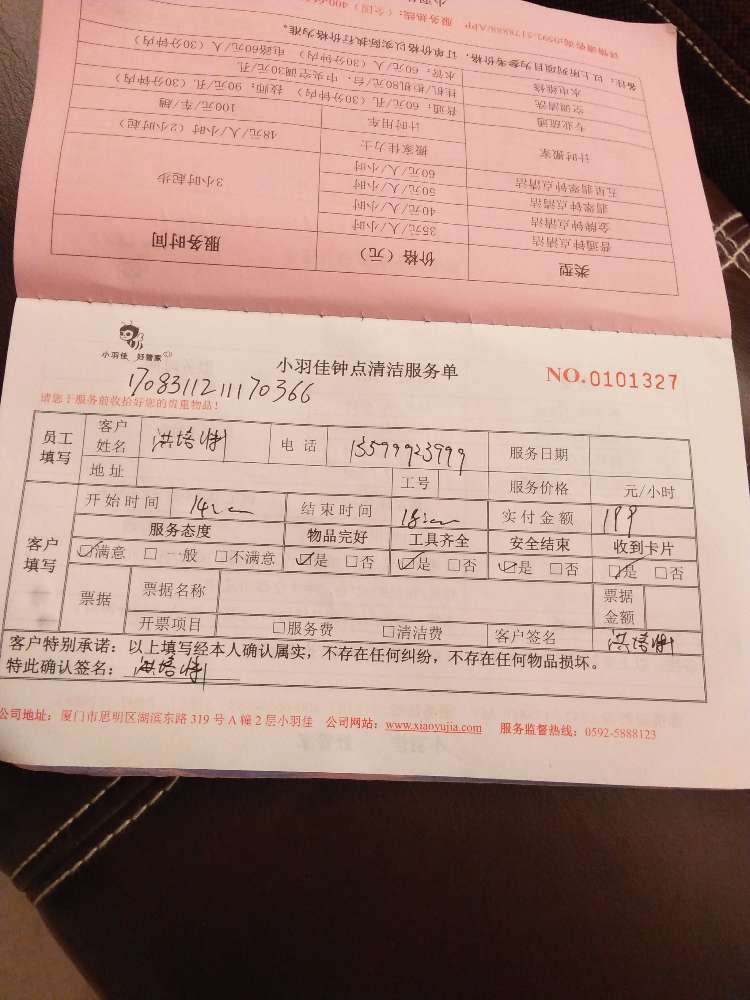 小羽佳
详情请咨询:0592-5178888/APP 服务热线:(全国)400-6
备注:以上所列项目为参考价格,订单价格以实际执行价格为准。
水电维修 水管:60元/人(30分钟内) 电路60元/人(30分钟内)
空调清洗 挂机/柜机80元/台,中央空调30元/孔
专业疏通 普通:60元/孔(30分钟内) 技师:90元/孔(30分钟内)
计时搬家 计时用车 100元/车/趟
搬家佳力士 48元/人/小时(2小时起)
五星翡翠钟点清洁 60元/人/小时 3小时起步
翡翠钟点清洁 50元/人/小时
金牌钟点清洁 40元/人/小时
普通钟点清洁 35元/人/小时
类型 价格(元) 服务时间
小羽佳 好管家
小羽佳钟点清洁服务单 NO.0101327
1708311211170366
请您于服务前收拾好您的贵重物品!
员工填写 客户姓名 洪培 电话 13599923999 服务日期
地址 工号 服务价格 元/小时
客户填写 开始时间 14:00 结束时间 18:00 实付金额 199
服务态度 物品完好 工具齐全 安全结束 收到卡片
☑满意 □一般 □不满意 ☑是 □否 ☑是 □否 ☑是 □否 ☑是 □否
票据 票据名称 票据金额
开票项目 □服务费 □清洁费 客户签名 洪培
客户特别承诺:以上填写经本人确认属实,不存在任何纠纷,不存在任何物品损坏。
特此确认签名:洪培
公司地址:厦门市思明区湖滨东路 319 号 A 幢 2 层小羽佳 公司网站:www.xiaoyujia.com 服务监督热线:0592-5888123